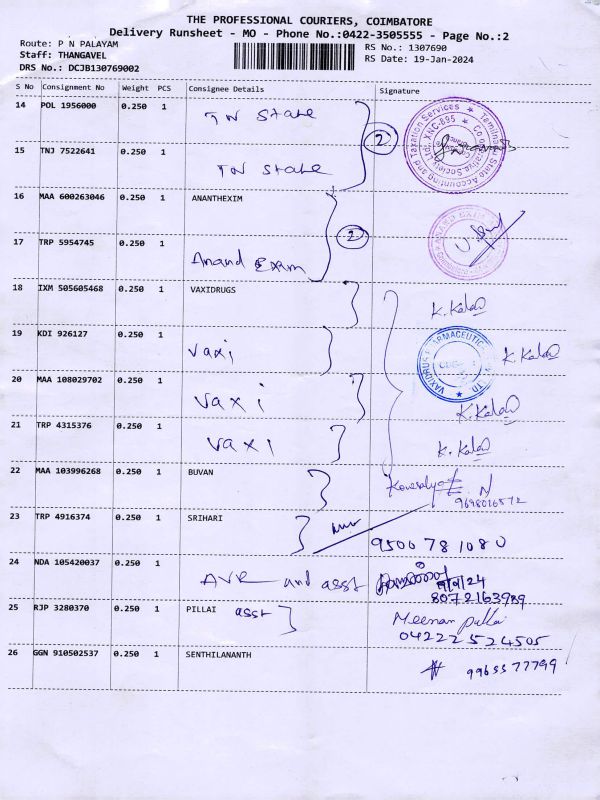 THE PROFESSIONAL COURIERS, COIMBATORE
Delivery Runsheet - MO - Phone No.:0422-3505555 - Page No.:2
Route: P N PALAYAM
RS No.: 1307690
Staff: THANGAVEL
RS Date: 19-Jan-2024
DRS No.: DCJB130769002
S No Consignment No Weight PCS Consignee Details Signature
14 POL 1956000 0.250 1 TN State
2
15 TNJ 7522641 0.250 1 TN State
16 MAA 600263046 0.250 1 ANANTHEXIM
2
17 TRP 5954745 0.250 1 Anand Exim
18 IXM 505605468 0.250 1 VAXIDRUGS K. Kalai
19 KDI 926127 0.250 1 vaxi K. Kalai
20 MAA 108029702 0.250 1 vaxi K. Kalai
21 TRP 4315376 0.250 1 vaxi K. Kalai
22 MAA 103996268 0.250 1 BUVAN
23 TRP 4916374 0.250 1 SRIHARI 9500781080
24 NDA 105420037 0.250 1 AVR and asst
25 RJP 3280370 0.250 1 PILLAI asst Meenan pillai
04222524505
26 GGN 910502537 0.250 1 SENTHILANANTH 9965577799